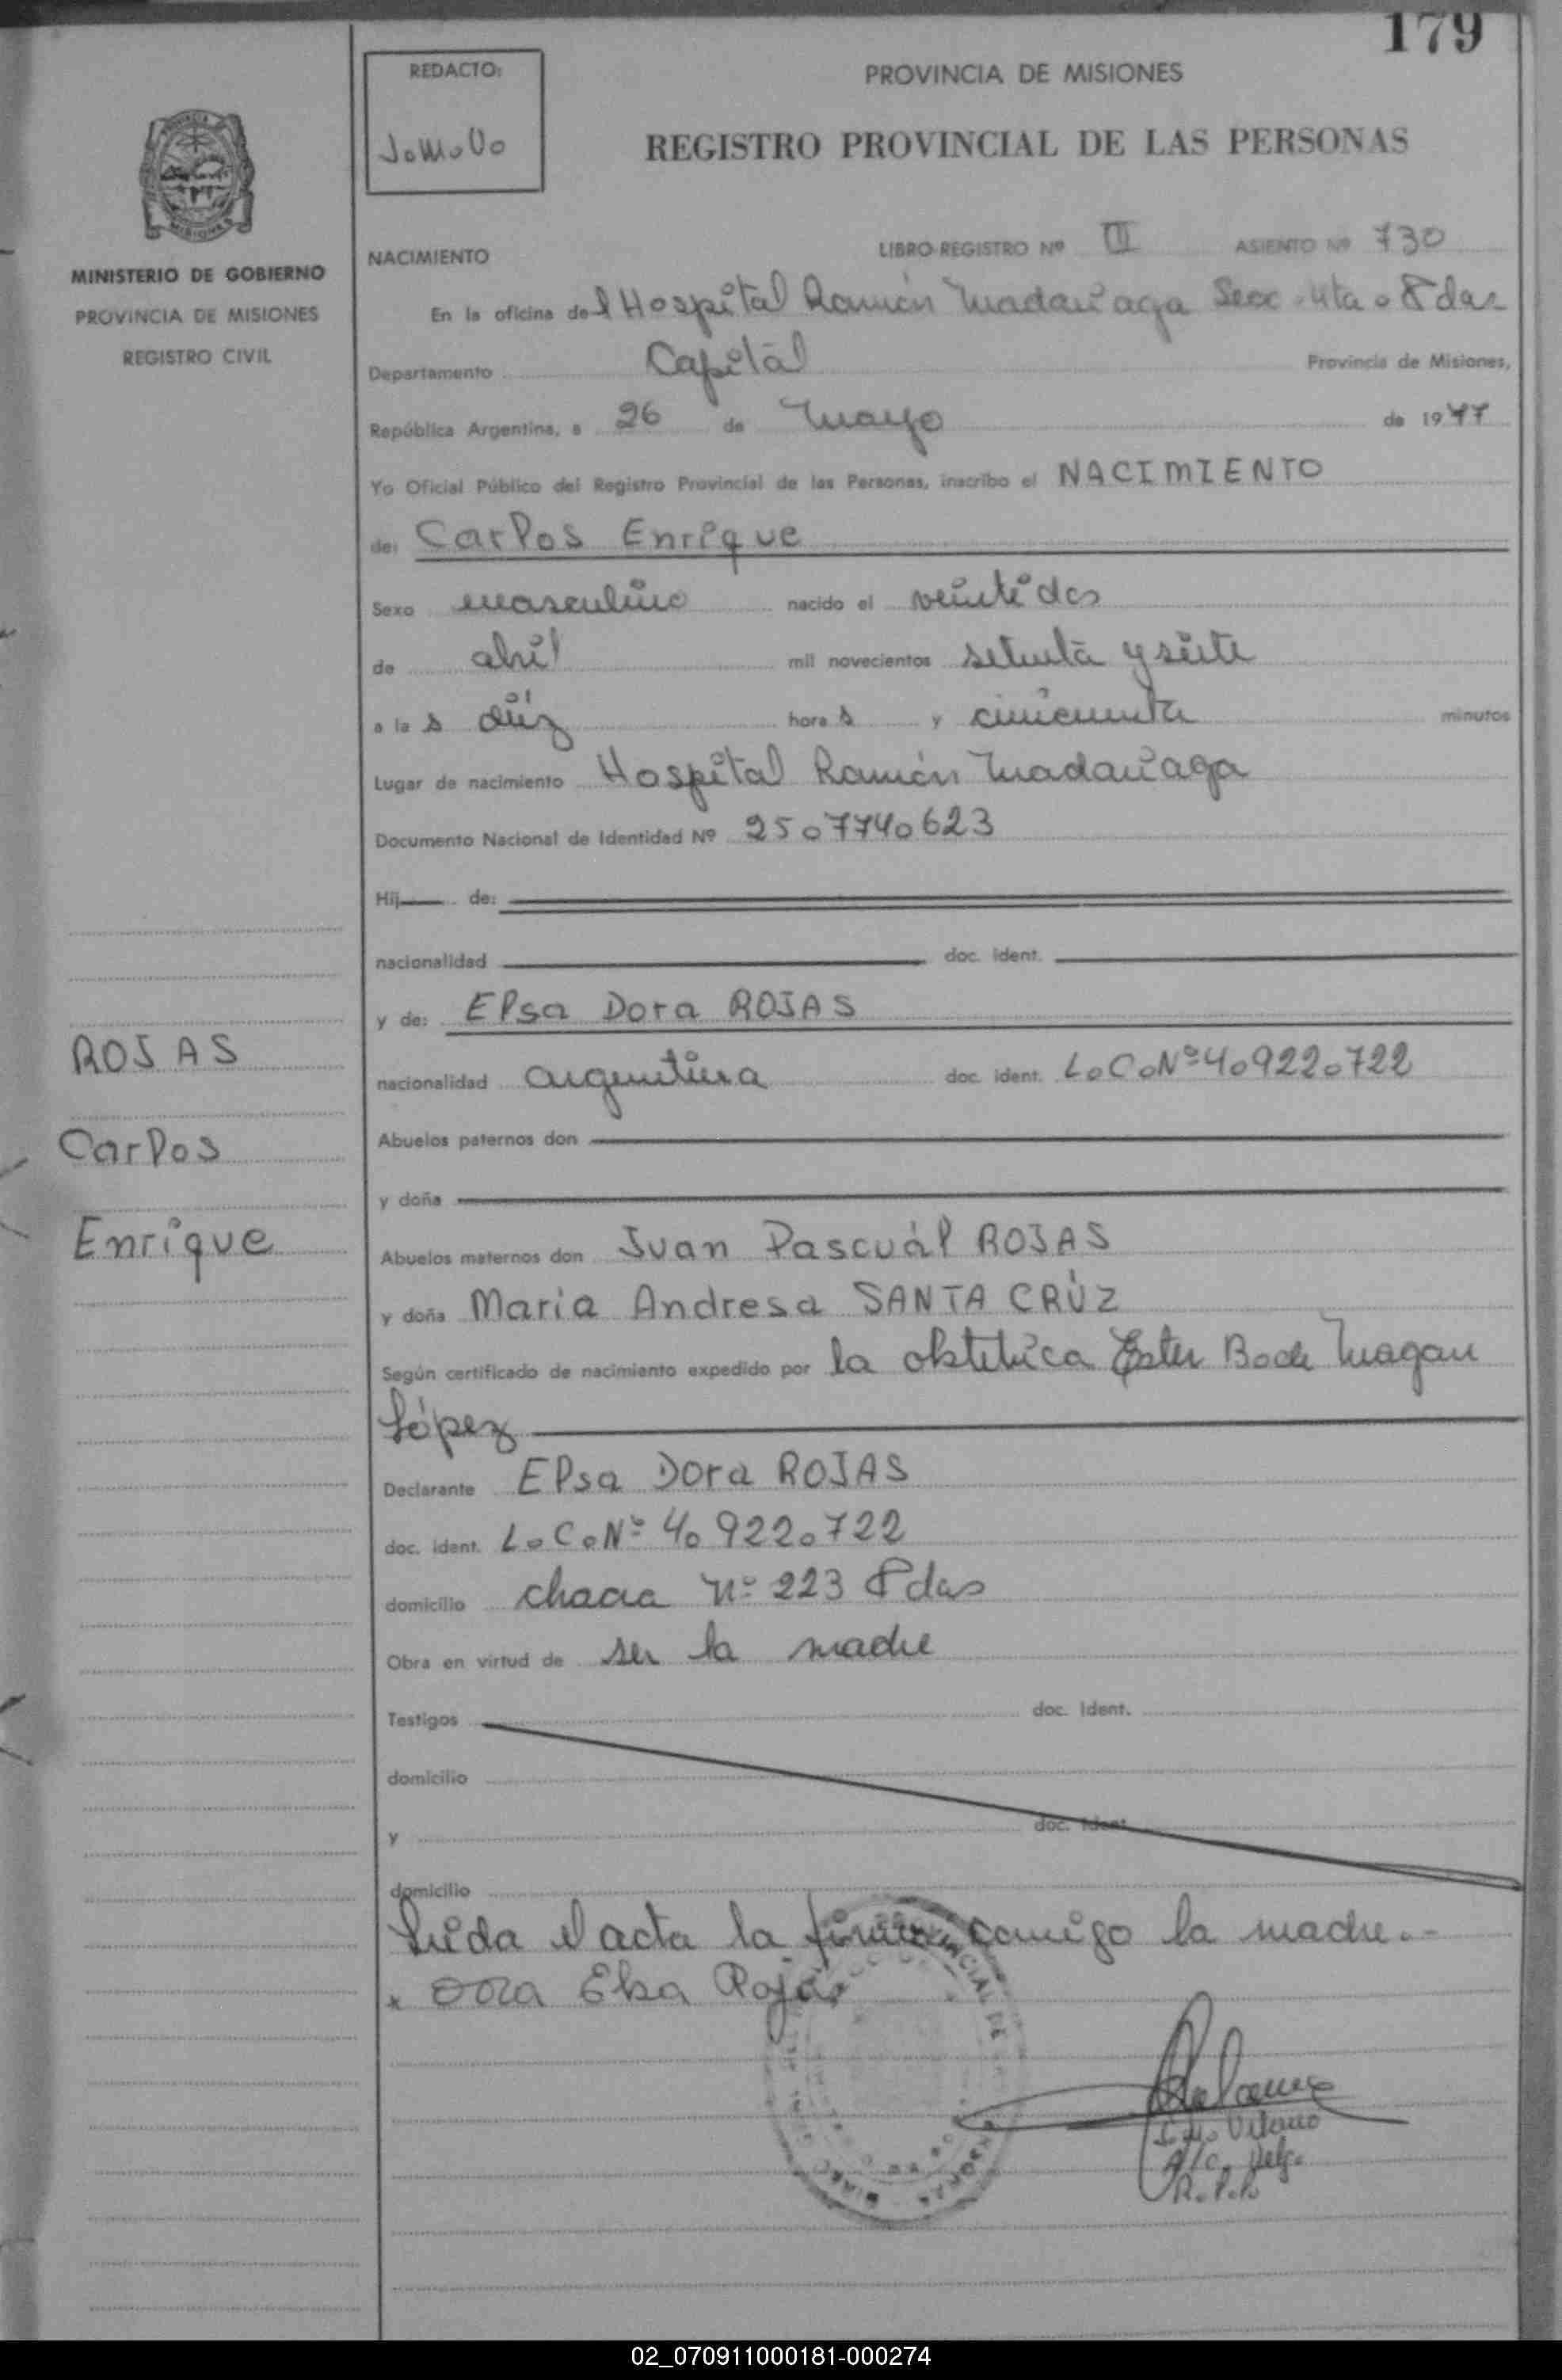 179
REDACTO:
PROVINCIA DE MISIONES
REGISTRO PROVINCIAL DE LAS PERSONAS
MINISTERIO DE GOBIERNO
PROVINCIA DE MISIONES
REGISTRO CIVIL
NACIMIENTO LIBRO-REGISTRO Nº III ASIENTO Nº 730
En la oficina del Hospital Ramón Madariaga Secc. 4ta. Pdas
Departamento Capital Provincia de Misiones,
República Argentina, a 26 de Mayo de 1977
Yo Oficial Público del Registro Provincial de las Personas, inscribo el NACIMIENTO
de: Carlos Enrique
Sexo masculino nacido el veintidos
de abril mil novecientos setenta y siete
a las diez horas y cincuenta minutos
Lugar de nacimiento Hospital Ramón Madariaga
Documento Nacional de Identidad Nº 25.774.623
Hij de:
nacionalidad doc. ident.
y de: Elsa Dora ROJAS
nacionalidad argentina doc. ident. L.C.Nº 4.922.722
Abuelos paternos don
y doña
Abuelos maternos don Juan Pascuál ROJAS
y doña Maria Andresa SANTA CRÚZ
Según certificado de nacimiento expedido por la obstetrica Ester Bode Magan
López
Declarante Elsa Dora ROJAS
doc. ident. L.C.Nº 4.922.722
domicilio chacra Nº 223 Pdas
Obra en virtud de ser la madre
Testigos doc. ident.
domicilio
y doc. ident.
domicilio
Leida el acta la firma comigo la madre.-
x Dora Elsa Rojas
A/c. Deleg.
R.P.P.
ROJAS
Carlos
Enrique
02_070911000181-000274